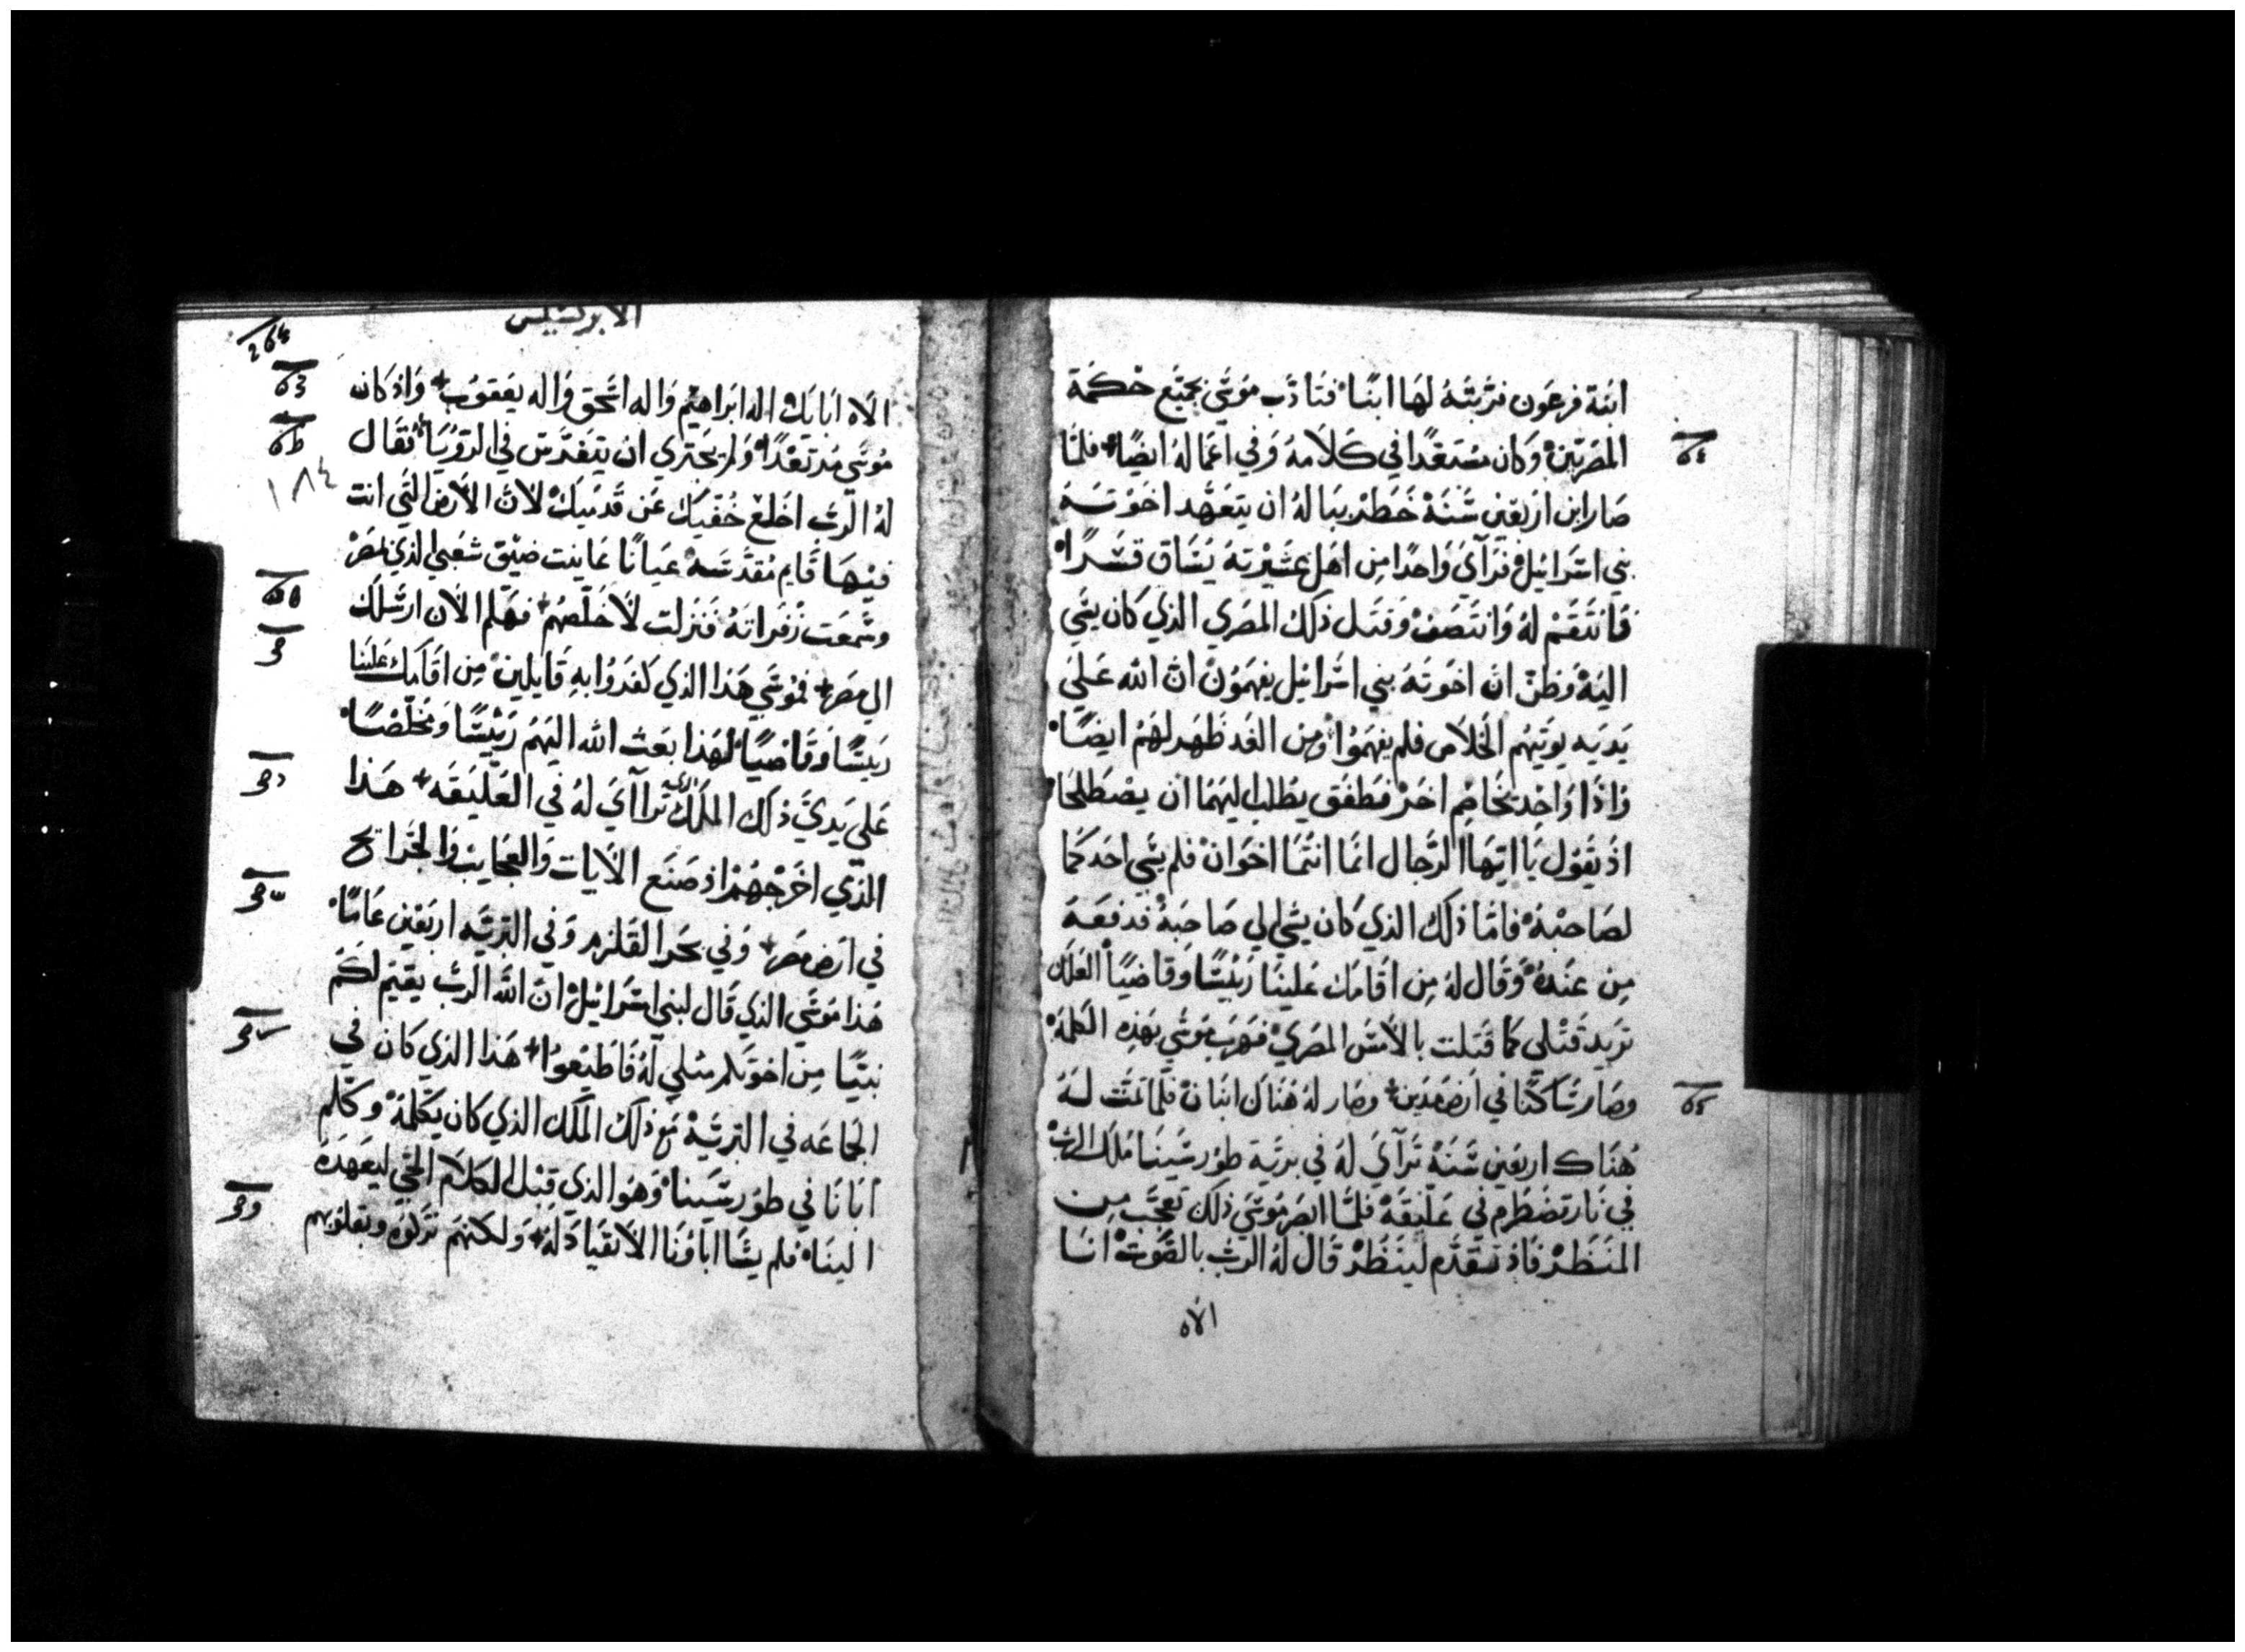 ابنة فرعون فربته لها ابنًا فتادب موسي بجميع حكمة
المصريين وكان مستعدًا في كلامه وفي اعماله ايضًا فلما
صار ابن اربعين سنة خطر بباله ان يتعهد اخوته
بني اسرائيل فرآي واحدًا من اهل عشيرته يساق قسرًا
فانتقم له وانتصف وقتل ذلك المصري الذي كان يسي
اليه وظن ان اخوته بني اسرائيل يفهمون ان الله علي
يديه يوتيهم الخلاص فلم يفهموا ومن الغد ظهر لهم ايضًا
واذا واحد يخاصم اخر فطفق يطلب اليهما ان يصطلحا
اذ يقول يا ايها الرجال انما انتما اخوان فلم يسي احدكما
لصاحبه فاما ذلك الذي كان يسي الي صاحبه فدفعه
من عنده وقال له من اقامك علينا رييسًا وقاضيًا العلك
تريد قتلي كما قتلت بالامس المصري فهرب موسي بهذه الكلمة
وصار ساكنًا في ارض مدين وصار له هناك ابنان فلما تمت له
هناك اربعين سنة ترآي له في برية طور سينا ملاك الرب
في نار تضطرم في عليقة فلما ابصر موسي ذلك تعجب من
المنظر فاذ تقدم لينظر قال له الرب بالصوت انا
الاه
الابركسيس
264
١٨٤
الاه ابايك اله ابراهيم واله اسحق واله يعقوب واذ كان
موسي مرتعدًا ولم يجتري ان يتفرس في الرؤيا فقال
له الرب اخلع خفيك عن قدميك لان الارض التي انت
فيها قايم مقدسه عيانًا عاينت ضيق شعبي الذي بمصر
وسمعت زفراته فنزلت لاخلصهم فهلم الان ارسلك
الي مصر فموسي هذا الذي كفروا به قايلين من اقامك علينا
رييسًا وقاضيًا لهذا بعث الله اليهم رييسًا ومخلصًا
علي يدي ذلك الملاك الذي ترآاي له في العليقه هذا
الذي اخرجهم اذ صنع الايات والعجايب والجرايح
في ارض مصر وفي بحر القلزم وفي البريه اربعين عامًا
هذا موسي الذي قال لبني اسرائيل ان الله الرب يقيم لكم
نبيًا من اخوتكم مثلي له فاطيعوا هذا الذي كان في
الجماعه في البرية مع ذلك الملاك الذي كان يكلمه وكلم
ابانا في طور سينا وهو الذي قبل الكلام الحي ليعهده
الينا فلم يشا اباونا الانقياد له ولكنهم تركوه وبقلوبهم